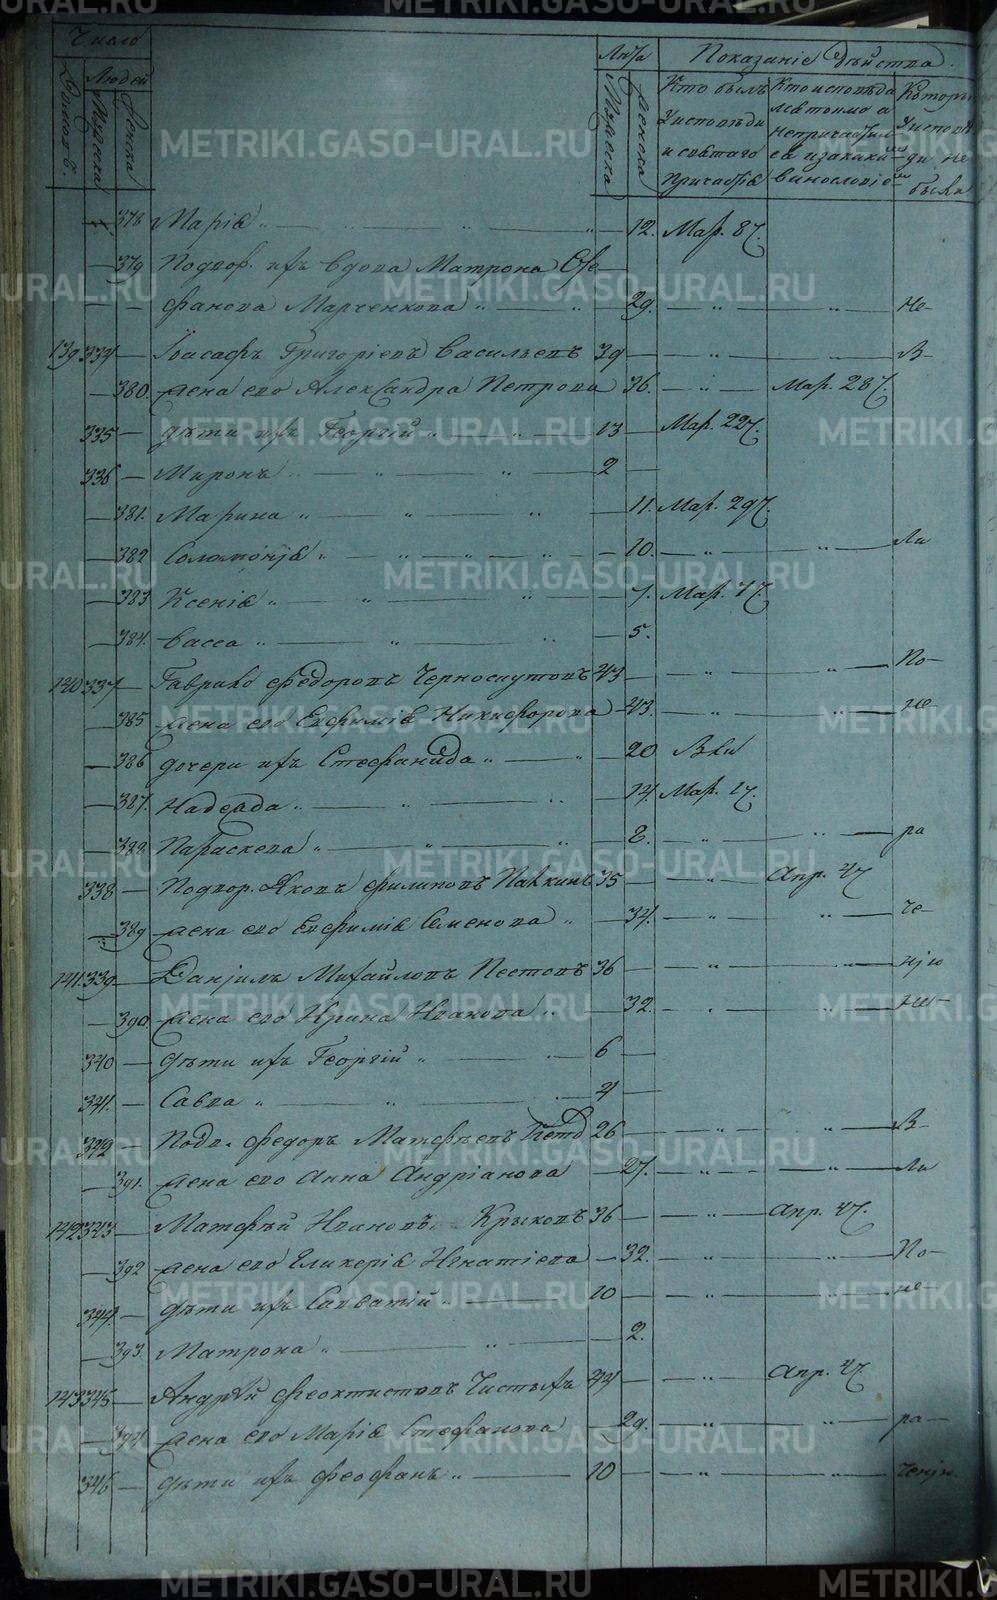 Число
Людей
Мужеска
Женска
Лѣта
Мужеска
Женска
Показаніе дѣйства.
Кто былъ
у исповѣди
и святаго
причастія
Кто исповѣда
лся токмо а
не причастил
ся и за какі
винословіе
Которы
у исповѣ
ди не
были
378 Марія 12. Мар. 8 ч.
379 Подвор. ихъ вдова Матрона Сте
фанова Марченкова 29. Не-
139 334 Іоасафъ Григоріевъ Васильевъ 39 В-
380. жена его Александра Петрова 36. Мар. 28 ч.
335 дѣти ихъ Георгій 13 Мар. 22 ч.
336 Миронъ 2
381. Марина 11. Мар. 29 ч.
382 Соломонія 10. Ли
383 Ксенія 7. Мар. 7 ч.
384. Васса 5.
140 337 Гаврило Федоровъ Черноскутовъ 43 По-
385 жена его Евфимія Никифорова 43. не-
386 дочери ихъ Стефанида 20 Яви
387. Надежда 14. Мар. 1 ч.
388 Параскева 8. ра
338 Подвор. Яковъ Филиповъ Пайкинъ 35 Апр. 4 ч
389 жена его Евфимія Семенова 34. че-
141. 339 Даніилъ Михайловъ Пестовъ 36 нію
390. жена его Ирина Иванова 32. не-
340 дѣти ихъ Георгій 6
341. Савва 4
342 Подв. Федоръ Матфѣевъ 26 В-
391. жена его Анна Андріанова 27. Ли
142 343 Матфѣй Ивановъ Крыковъ 36 Апр. 4 ч.
392 жена его Гликерія Игнатіева 32. По-
344. дѣти ихъ Савватій 10 не-
393. Матрона 2.
143 345 Андрѣй Феоктистовъ Чистыхъ 44 Апр. 4 ч.
394 жена его Марія Стефанова 29. ра-
346 дѣти ихъ Феофанъ 10 ченію
METRIKI.GASO-URAL.RU